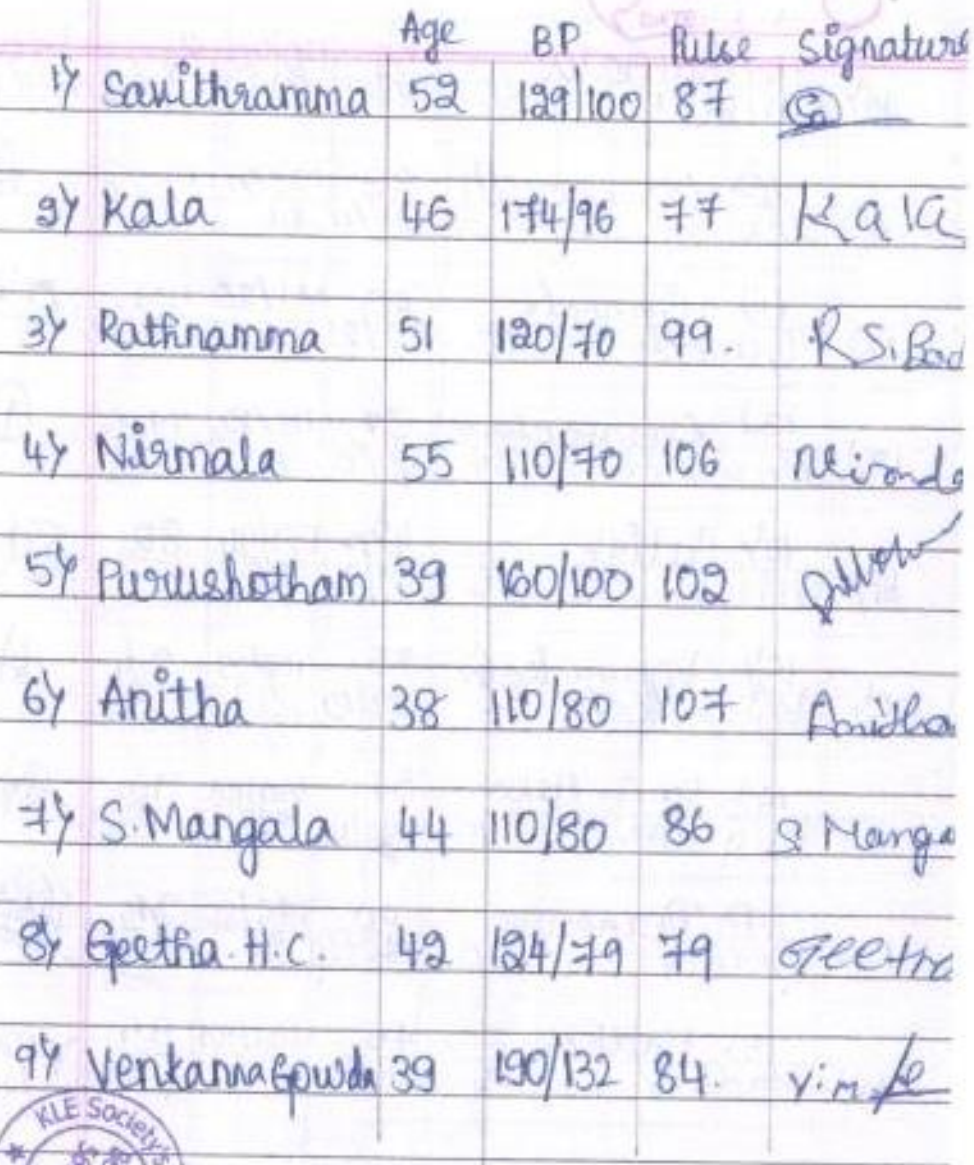 Age BP Pulse Signature
1) Savithramma 52 129/100 87
2) Kala 46 174/96 77 Kala
3) Rathnamma 51 120/70 99. R S. Bad
4) Nirmala 55 110/70 106
5) Purushotham 39 160/100 102
6) Anitha 38 110/80 107 Anitha
7) S. Mangala 44 110/80 86 S Manga
8) Geetha. H.C. 42 124/79 79 Geetha
9) Venkanna Gowda 39 190/132 84.
KLE Society's